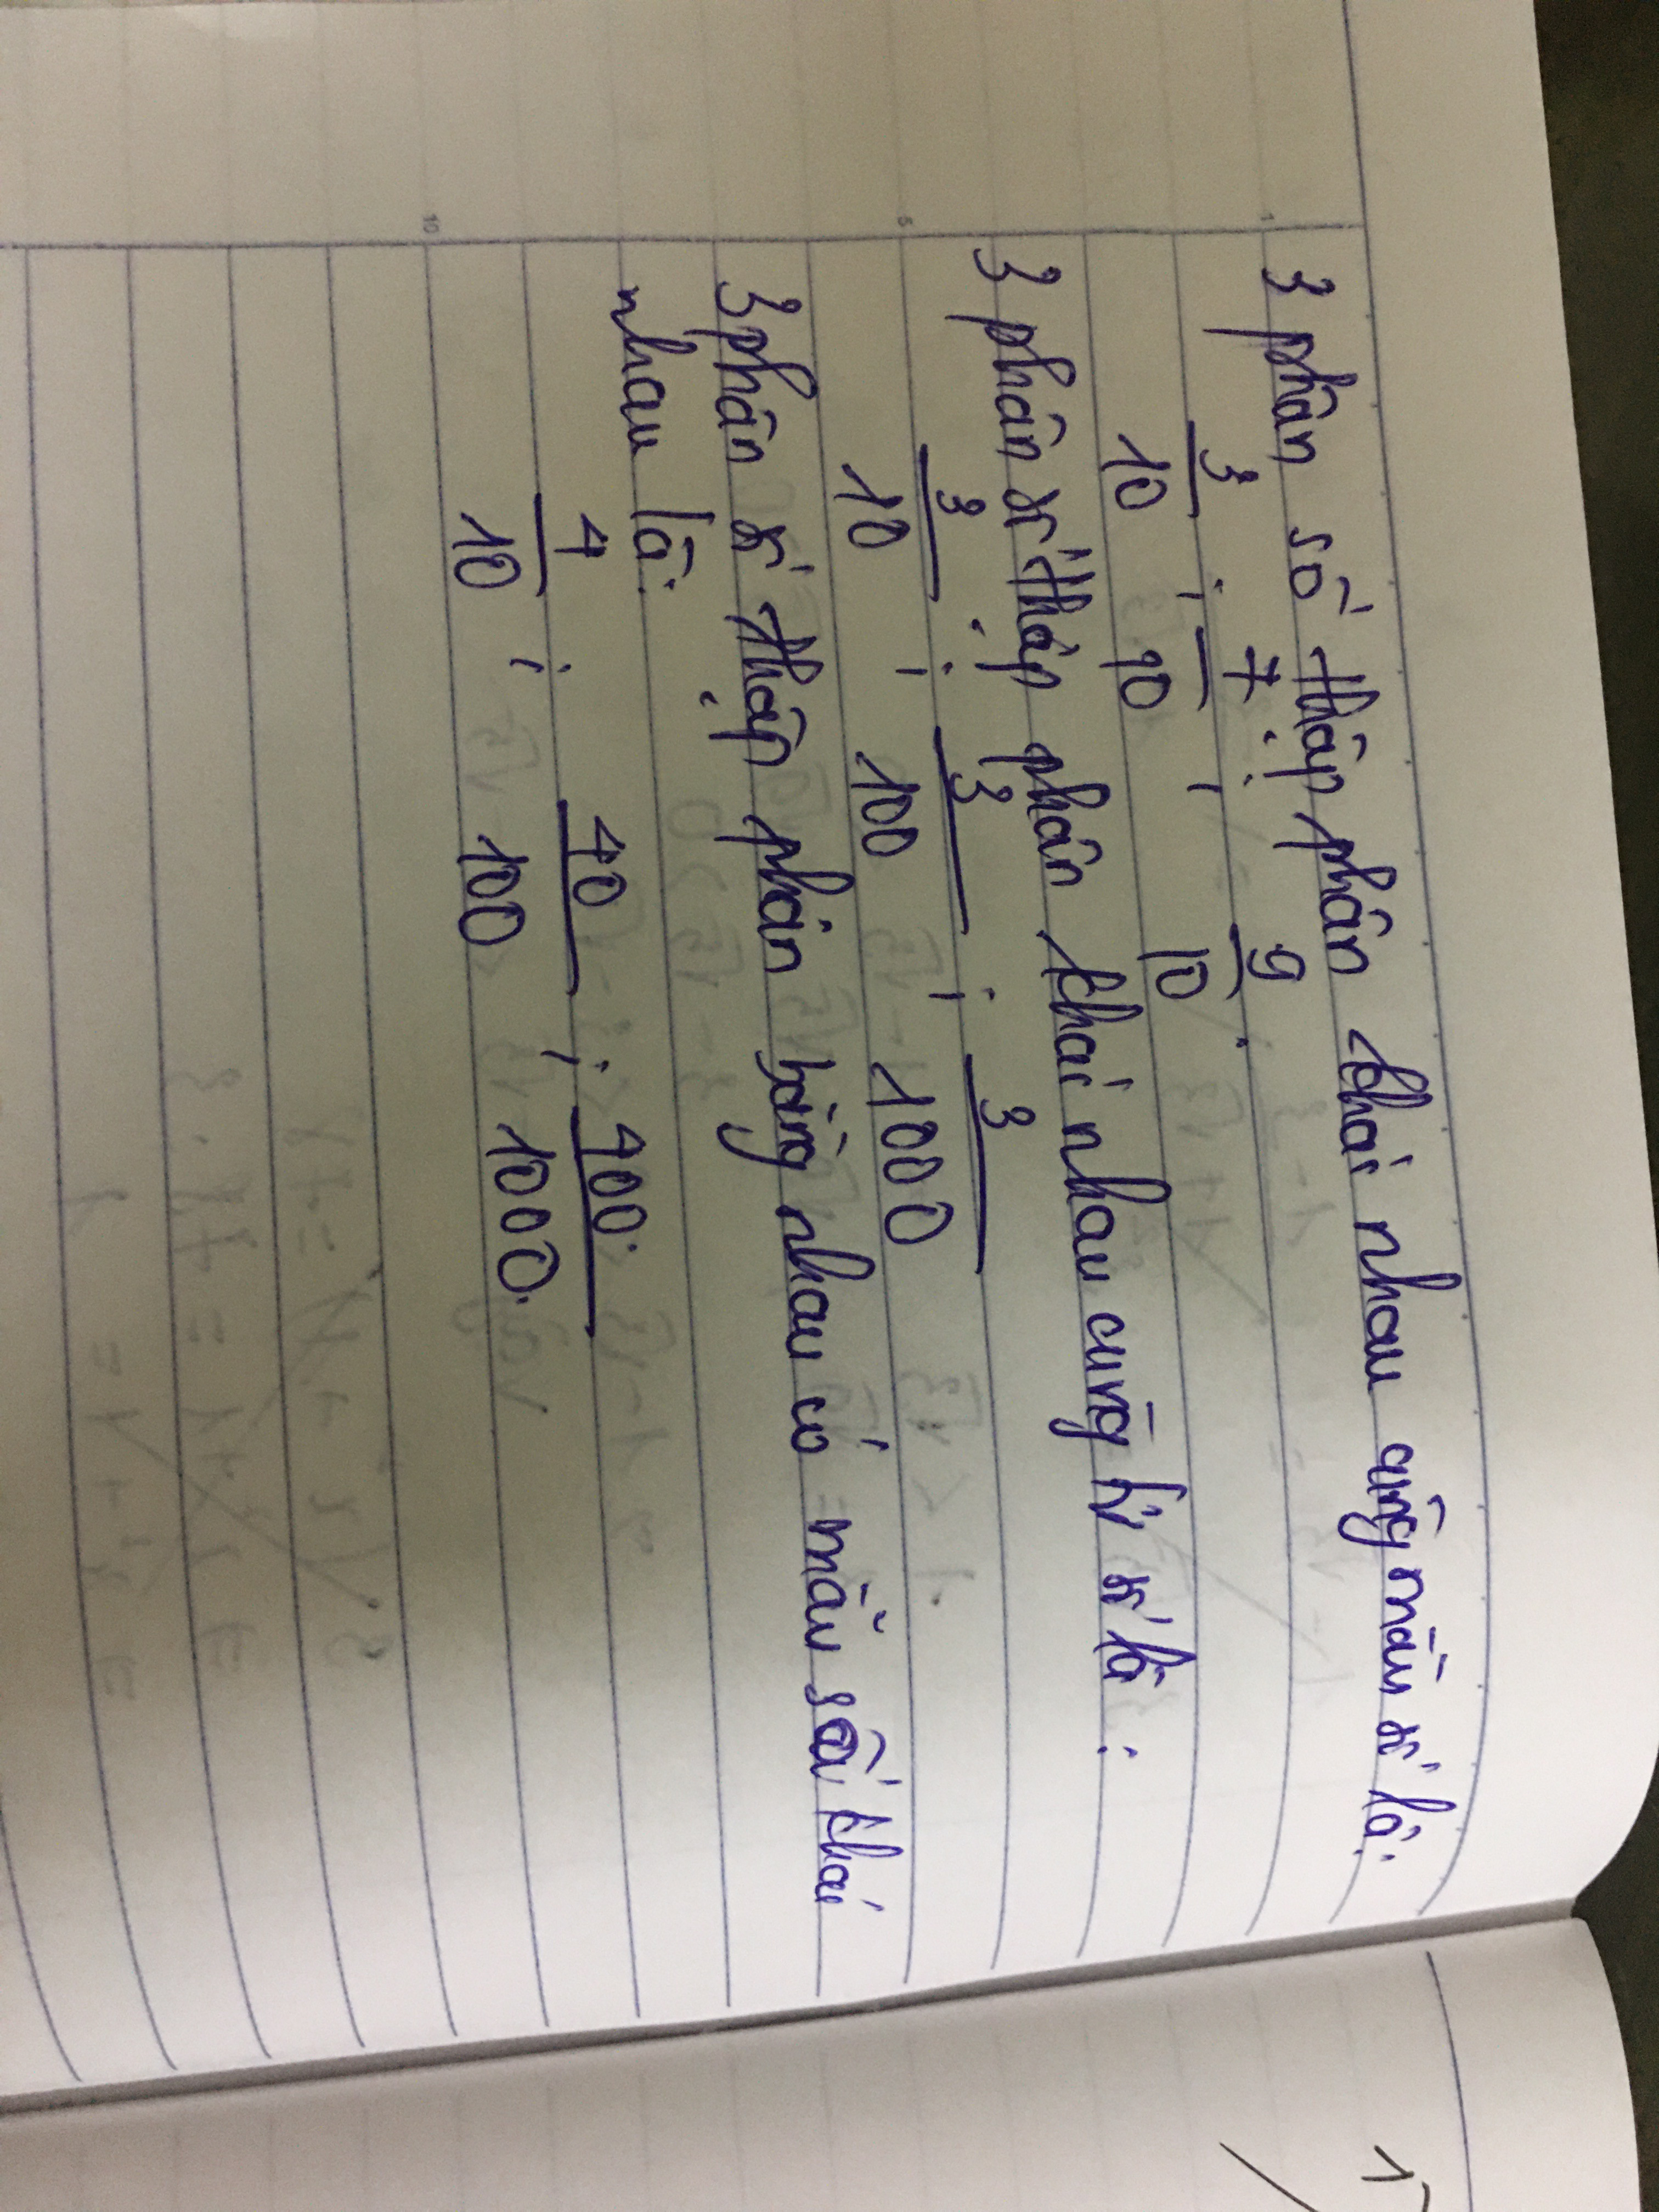 3 phân số thập phân khác nhau cùng mẫu số là:
3/10 ; 7/10 ; 9/10.
3 phân số thập phân khác nhau cùng tử số là:
3/10 ; 3/100 ; 3/1000
3 phân số thập phân bằng nhau có mẫu số khác
nhau là:
4/10 ; 40/100 ; 400/1000.